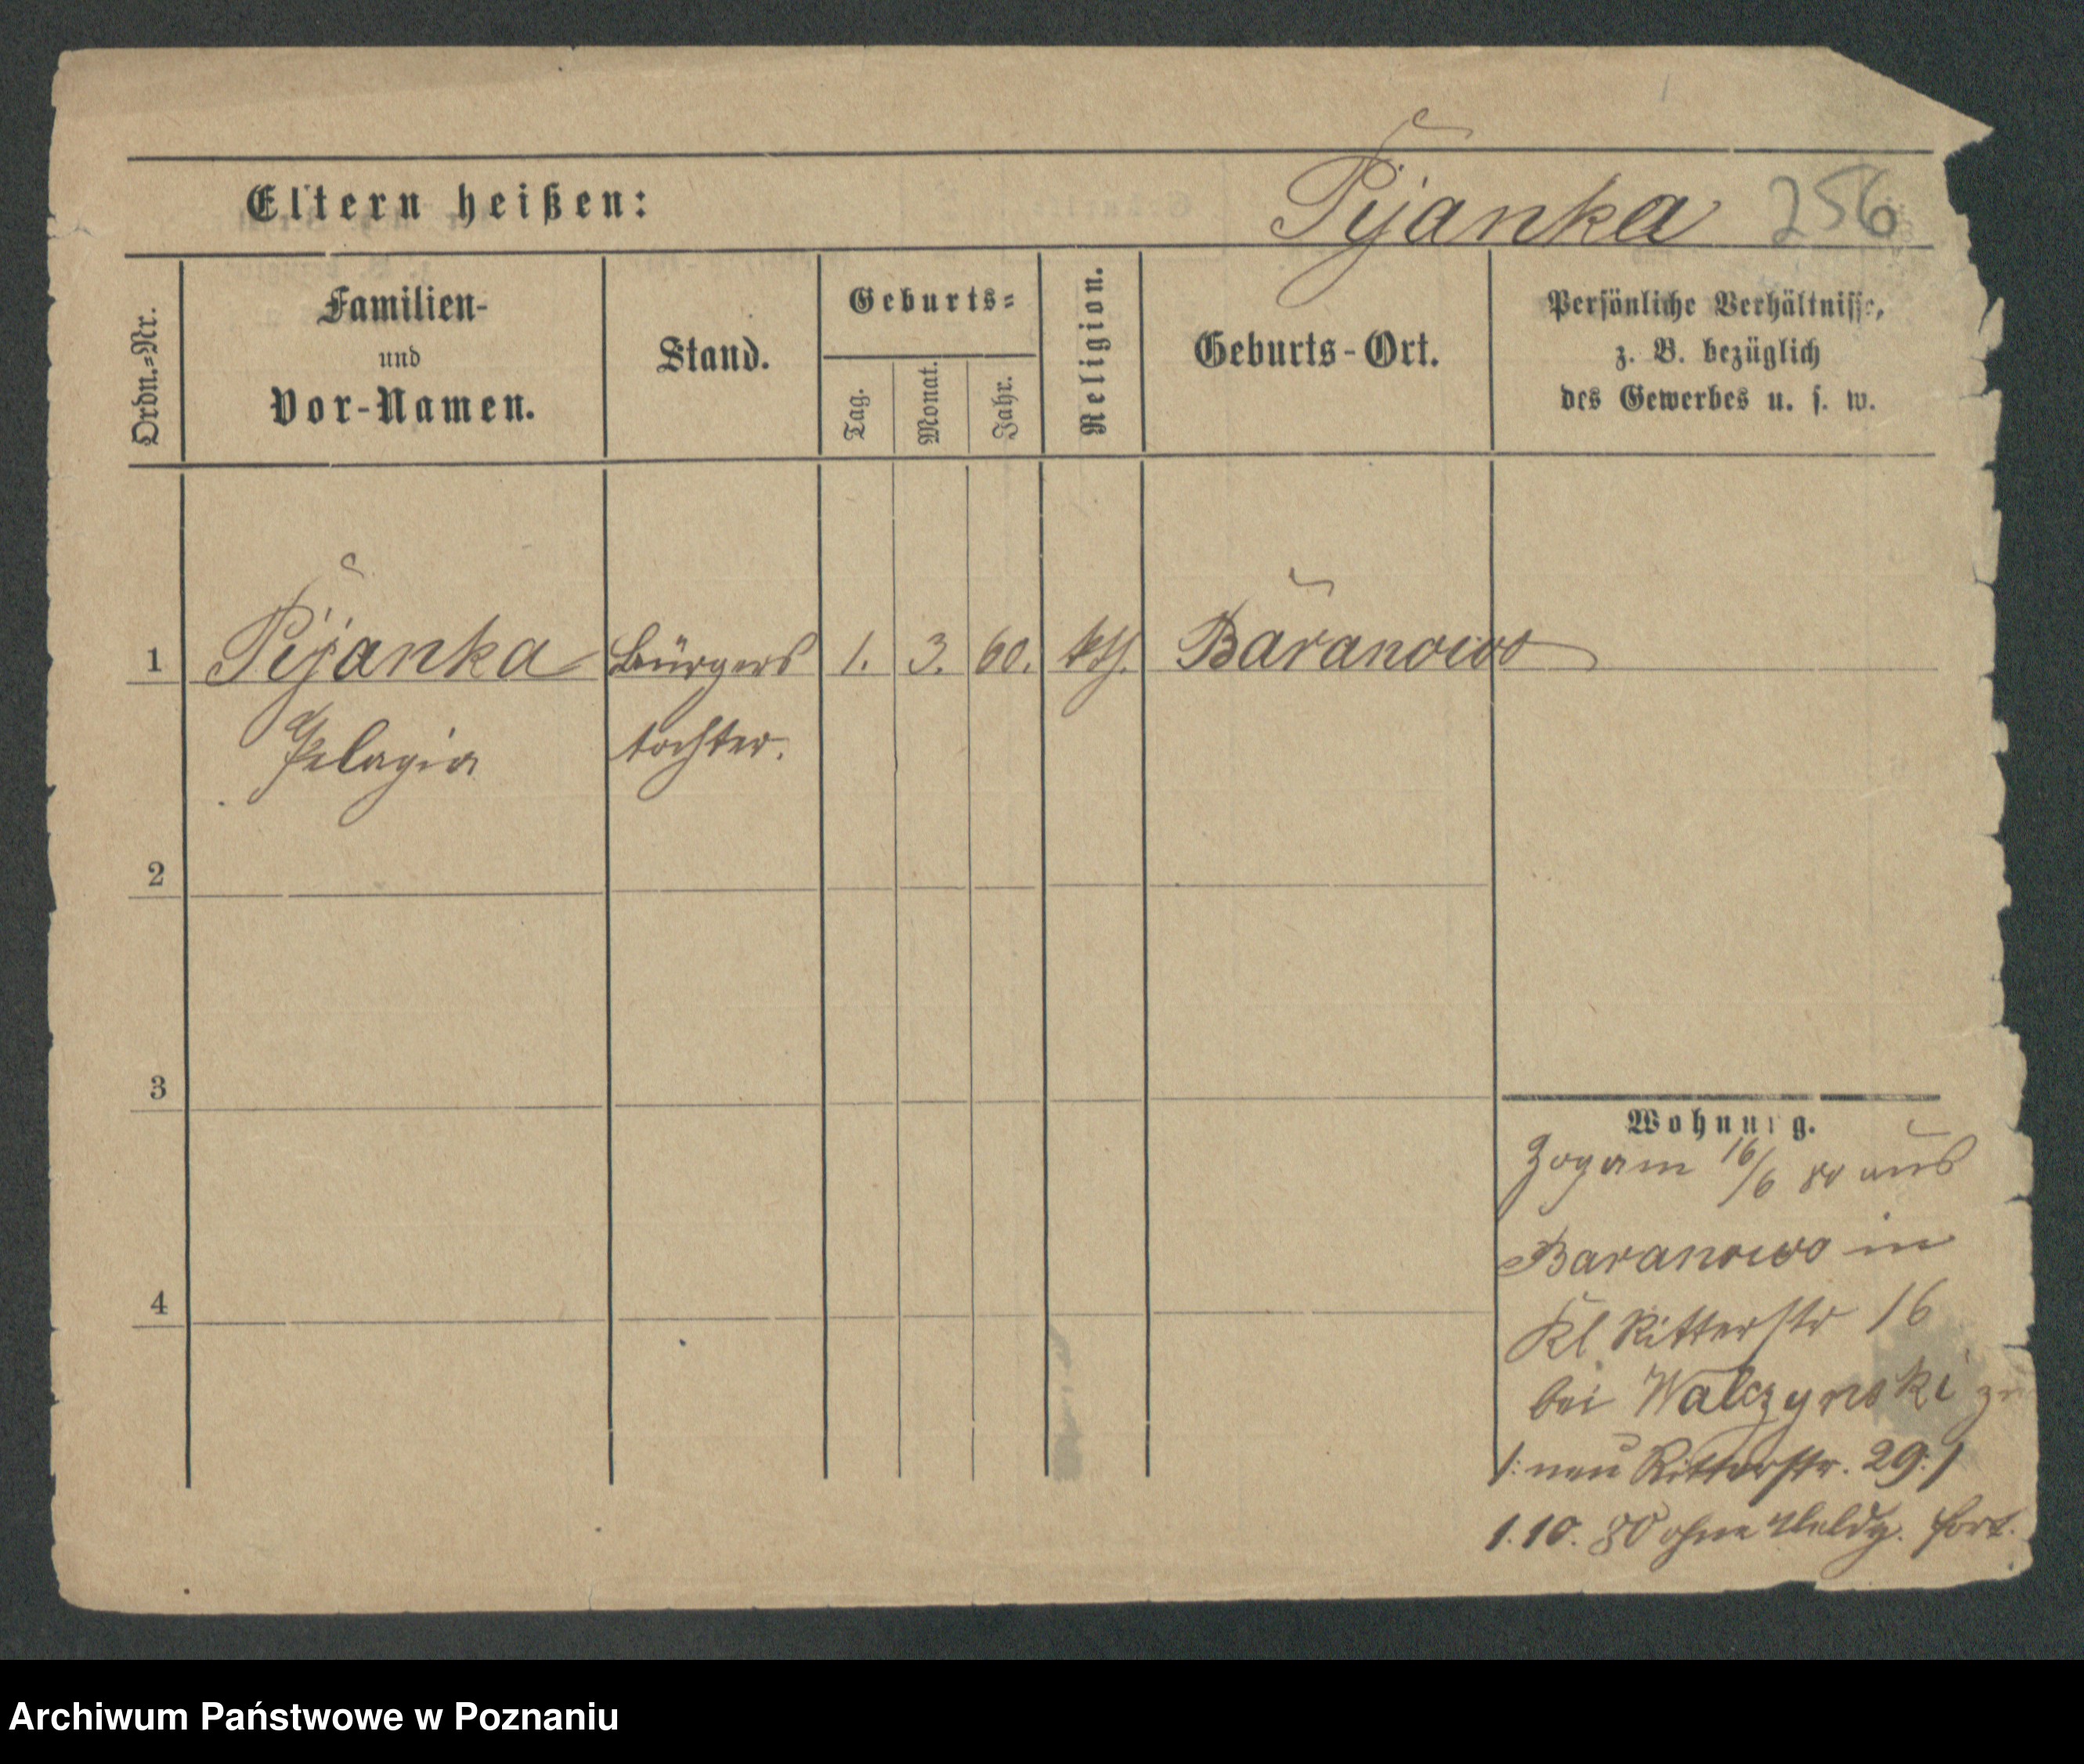 Eltern heißen: Pijanka 256
Ordn.=Nr.
Familien-
und
Vor-Namen.
Stand.
Geburts=
Tag.
Monat.
Jahr.
Religion.
Geburts-Ort.
Persönliche Verhältnisse,
z. B. bezüglich
des Gewerbes u. s. w.
1 Pijanka Bürgers 1. 3. 60. kth. Baranowo
Pelagia tochter.
2
3
4
Wohnung.
Zog am 16/6 80 aus
Baranowo in
Kl Ritterstr 16
bei Walczynski
/: neu Ritterstr. 29 :/
1. 10. 80 ohne Meldg. fort.
Archiwum Państwowe w Poznaniu